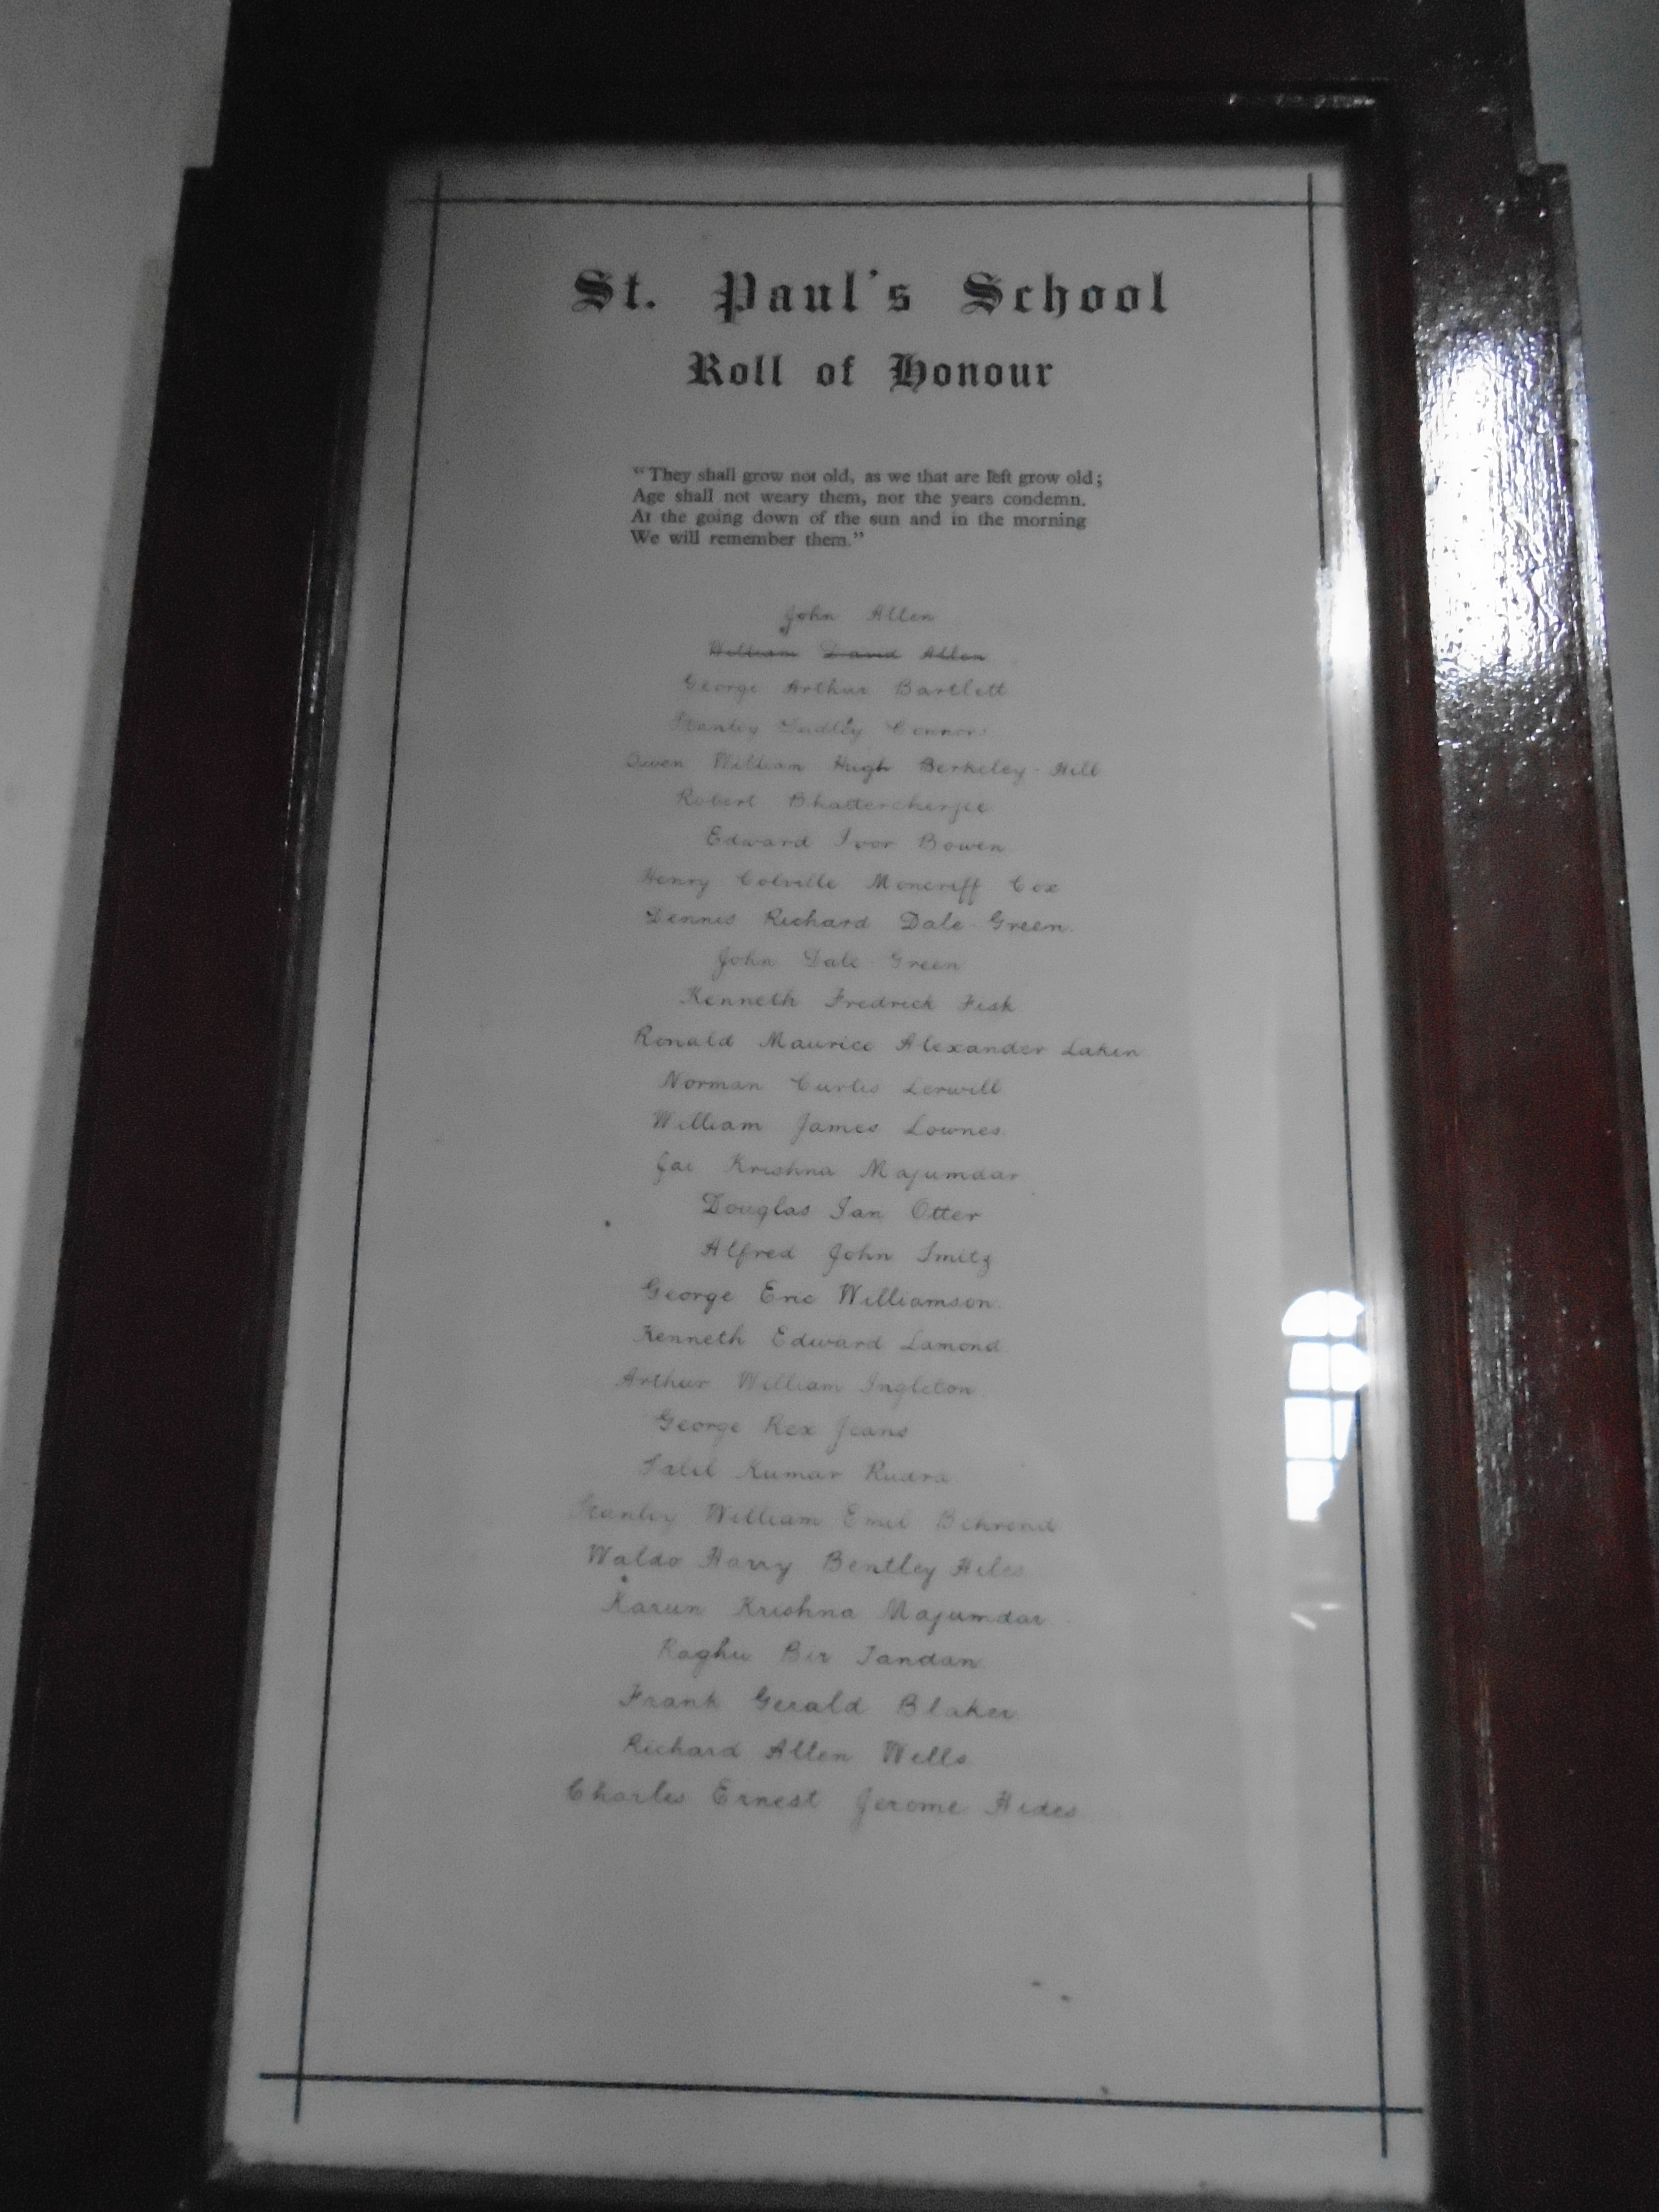 St. Paul's School
Roll of Honour
"They shall grow not old, as we that are left grow old;
Age shall not weary them, nor the years condemn.
At the going down of the sun and in the morning
We will remember them."
John Allen
William David Allen
George Arthur Bartlett
Stanley Dudley Connors
Owen William Hugh Berkeley-Hill
Robert Bhattercherjee
Edward Ivor Bowen
Henry Colville Moncriff Cox
Dennis Richard Dale-Green.
John Dale-Green
Kenneth Fredrick Fisk
Ronald Maurice Alexander Laken
Norman Curtis Lerwill
William James Lownes.
Jai Krishna Majumdar
Douglas Ian Otter
Alfred John Smitz
George Eric Williamson.
Kenneth Edward Lamond.
Arthur William Ingleton.
George Rex Jeans
Salil Kumar Rudra.
Stanley William Emil Behrend
Waldo Harry Bentley Hiles
Karun Krishna Majumdar
Raghu Bir Tandan
Frank Gerald Blaker
Richard Allen Wells
Charles Ernest Jerome Hides